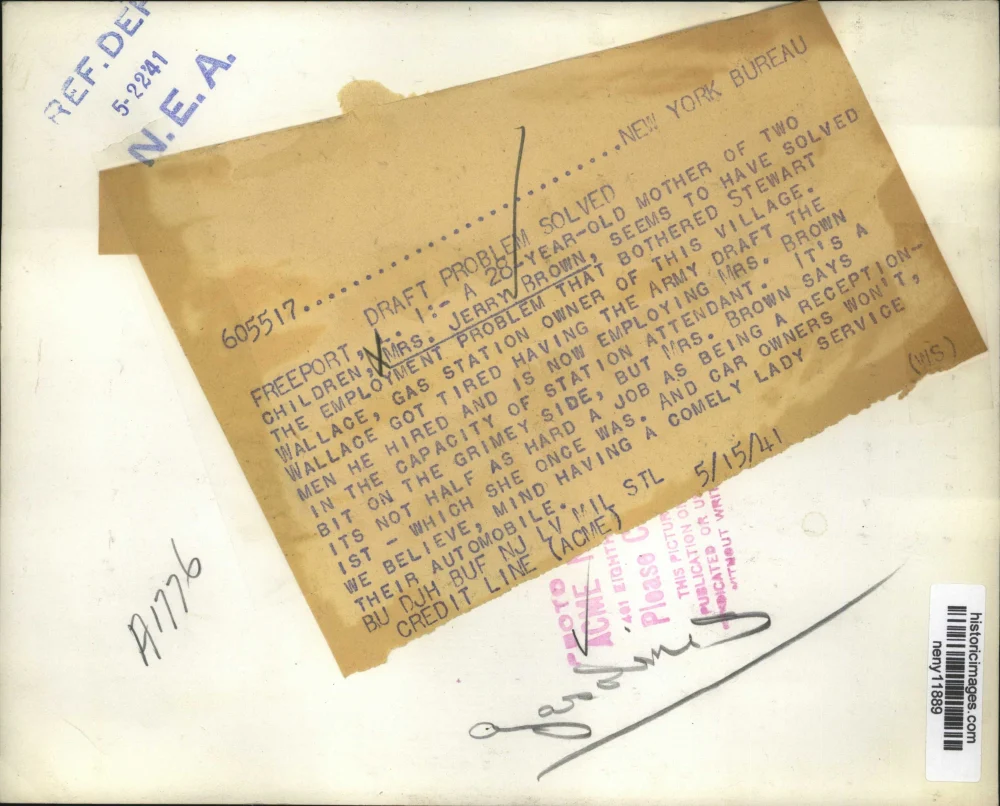 REF. DEP
5-22 41
N.E.A.
605517 NEW YORK BUREAU
DRAFT PROBLEM SOLVED
FREEPORT, N. I.- A 28-YEAR-OLD MOTHER OF TWO
CHILDREN, MRS. JERRY BROWN, SEEMS TO HAVE SOLVED
THE EMPLOYMENT PROBLEM THAT BOTHERED STEWART
WALLACE, GAS STATION OWNER OF THIS VILLAGE.
WALLACE GOT TIRED HAVING THE ARMY DRAFT THE
MEN HE HIRED AND IS NOW EMPLOYING MRS. BROWN
IN THE CAPACITY OF STATION ATTENDANT. IT'S A
BIT ON THE GRIMEY SIDE, BUT MRS. BROWN SAYS
ITS NOT HALF AS HARD A JOB AS BEING A RECEPTION-
IST - WHICH SHE ONCE WAS. AND CAR OWNERS WON'T,
WE BELIEVE, MIND HAVING A COMELY LADY SERVICE
THEIR AUTOMOBILE.
BU DJH BUF NJ LV MIL STL 5/15/41
CREDIT LINE (ACME)
(WS)
PHOTO
ACME
461 EIGHTH
Please C
THIS PICTUR
PUBLICATION O
DICATED OR U
WITHOUT WRIT
A1776
Gasoline
historicimages.com
neny11889